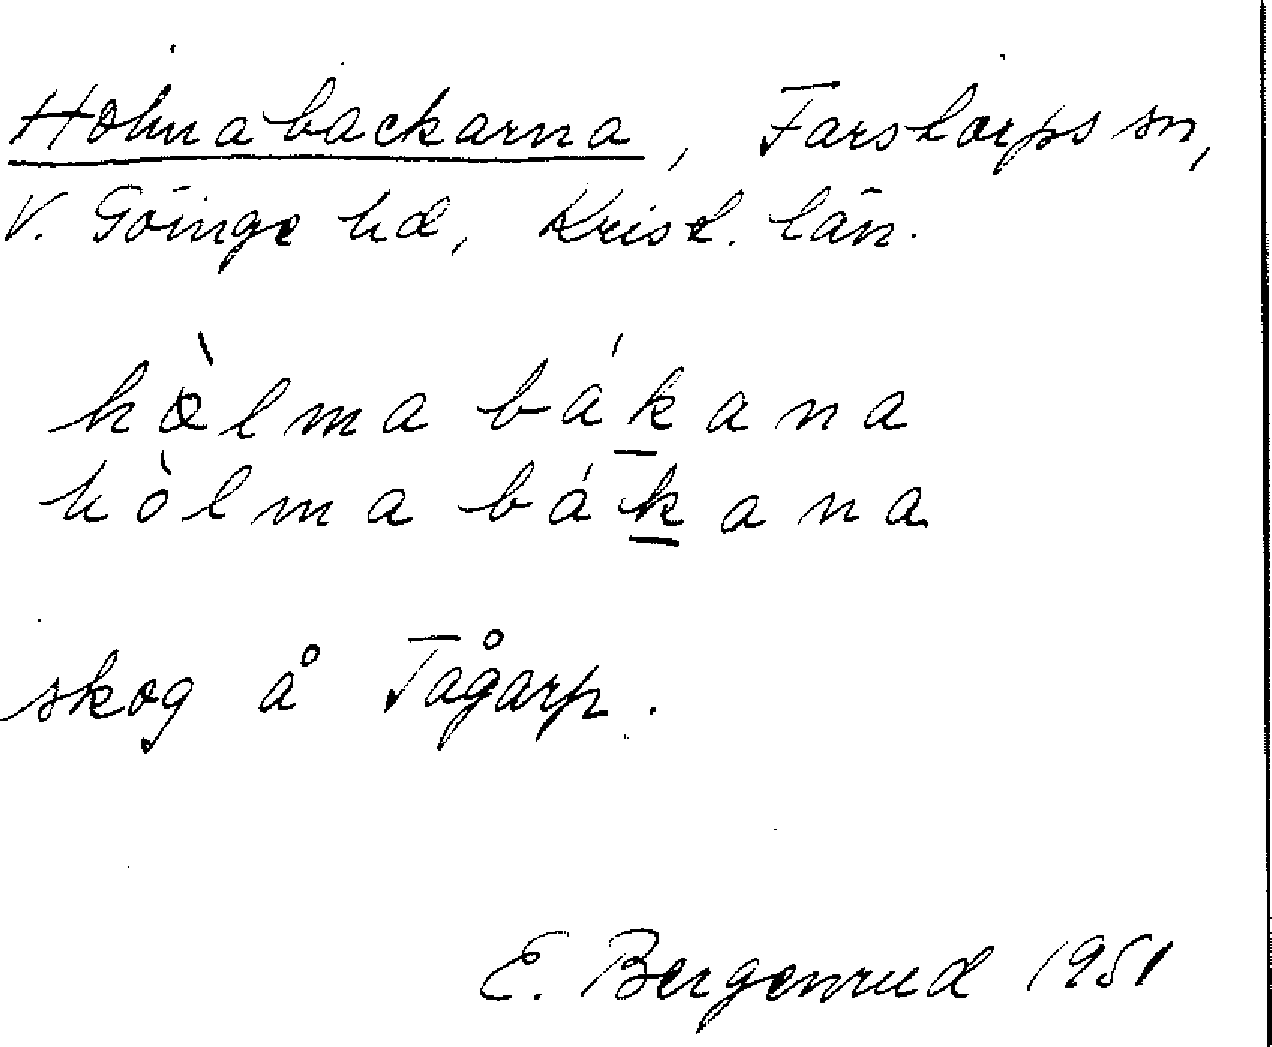 Holmabackarna, Farstorps sn,
V. Göinge hd, Krist. län.
hòlma bákana
hòlma bákana
skog å Tågarp.
E. Bergenrud 1951